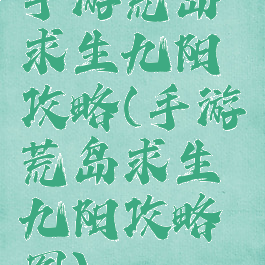 手游荒岛
求生九阳
攻略(手游
荒岛求生
九阳攻略
图)